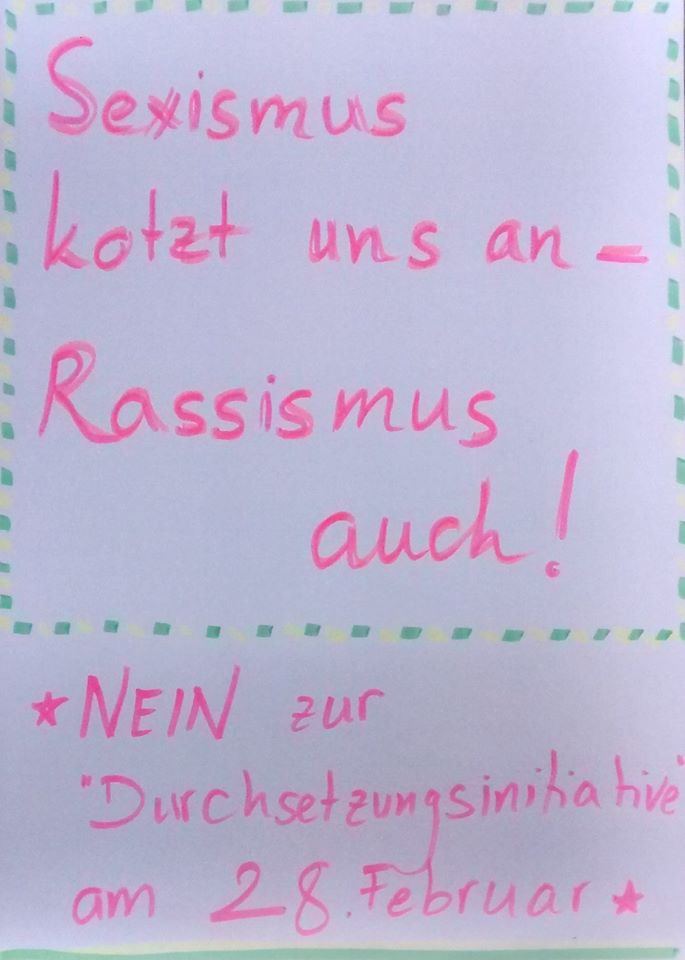 Sexismus
kotzt uns an -
Rassismus
auch!
★ NEIN zur
"Durchsetzungsinitiative"
am 28. Februar ★